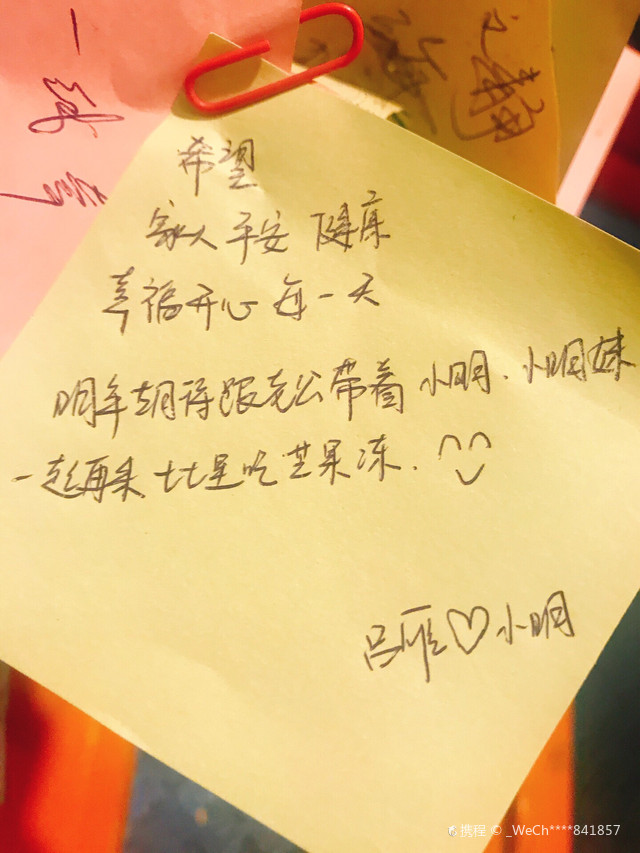 希望
家人 平安 健康
幸福开心 每一天
明年期待跟老公带着 小明、小明妹
一起再来 七七星吃 芒果冻.
吕雁♡小明
携程 © _WeCh****841857